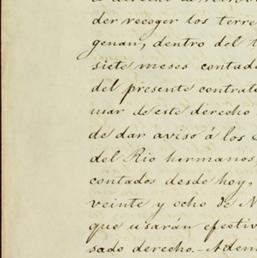 der recoger los terre
genan, dentro del t
siete meses contad
del presente contrat
usar de este derecho
de dar aviso á los
del Rio hermanos
contados desde hoy,
veinte y ocho de N
que usarán efectiv
sado derecho.- Adem